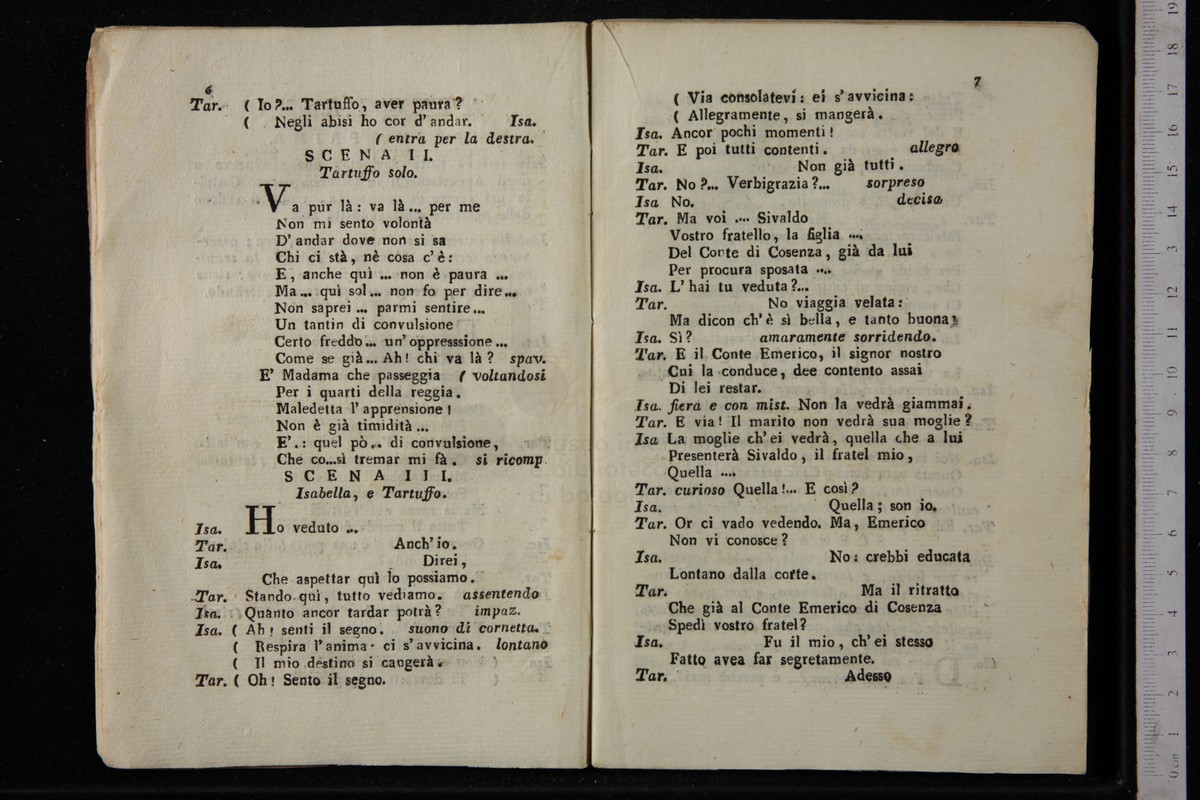 6
Tar. ( Io?... Tartuffo, aver paura?
( Negli abisi ho cor d'andar. Isa.
( entra per la destra.
SCENA II.
Tartuffo solo.
Va pur là: va là... per me
Non mi sento volontà
D'andar dove non si sa
Chi ci stà, nè cosa c'è:
E, anche quì ... non è paura ...
Ma... quì sol... non fo per dire...
Non saprei ... parmi sentire...
Un tantin di convulsione
Certo freddo... un'oppresssione...
Come se già... Ah! chi va là? spav.
E' Madama che passeggia ( voltandosi
Per i quarti della reggia.
Maledetta l'apprensione!
Non è già timidità...
E'.: quel pò.. di convulsione,
Che co...sì tremar mi fà. si ricomp.
SCENA III.
Isabella, e Tartuffo.
Isa. Ho veduto ...
Tar. Anch'io.
Isa. Direi,
Che aspettar quì lo possiamo.
Tar. Stando quì, tutto vediamo. assentendo
Isa. Quanto ancor tardar potrà? impaz.
Isa. ( Ah! senti il segno. suono di cornetta.
( Respira l'anima· ci s'avvicina. lontano
( Il mio destino si cangerà.
Tar. ( Oh! Sento il segno.
7
( Via consolatevi: ei s'avvicina:
( Allegramente, si mangerà.
Isa. Ancor pochi momenti!
Tar. E poi tutti contenti. allegro
Isa. Non già tutti.
Tar. No?... Verbigrazia?... sorpreso
Isa No. decisa
Tar. Ma voi .... Sivaldo
Vostro fratello, la figlia ....
Del Conte di Cosenza, già da lui
Per procura sposata ....
Isa. L'hai tu veduta?...
Tar. No viaggia velata:
Ma dicon ch'è sì bella, e tanto buona;
Isa. Sì? amaramente sorridendo.
Tar. E il Conte Emerico, il signor nostro
Cui la conduce, dee contento assai
Di lei restar.
Isa. fiera e con mist. Non la vedrà giammai.
Tar. E via! Il marito non vedrà sua moglie?
Isa La moglie ch'ei vedrà, quella che a lui
Presenterà Sivaldo, il fratel mio,
Quella ....
Tar. curioso Quella!... E così?
Isa. Quella; son io.
Tar. Or ci vado vedendo. Ma, Emerico
Non vi conosce?
Isa. No: crebbi educata
Lontano dalla corte.
Tar. Ma il ritratto
Che già al Conte Emerico di Cosenza
Spedì vostro fratel?
Isa. Fu il mio, ch'ei stesso
Fatto avea far segretamente.
Tar. Adesso